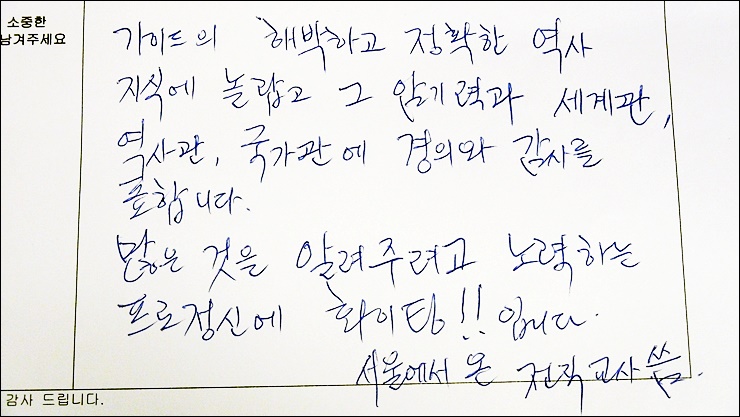 소중한
남겨주세요
가이드의 해박하고 정확한 역사
지식에 놀랍고 그 암기력과 세계관,
역사관, 국가관에 경의와 감사를
표합니다.
많은 것을 알려주려고 노력하는
프로정신에 화이팅!! 입니다.
서울에서 온 전직교사 씀.
감사 드립니다.